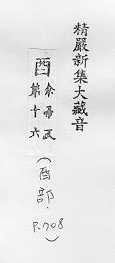 精嚴新集大藏音
酉
第十六
(酉部.
P.708)